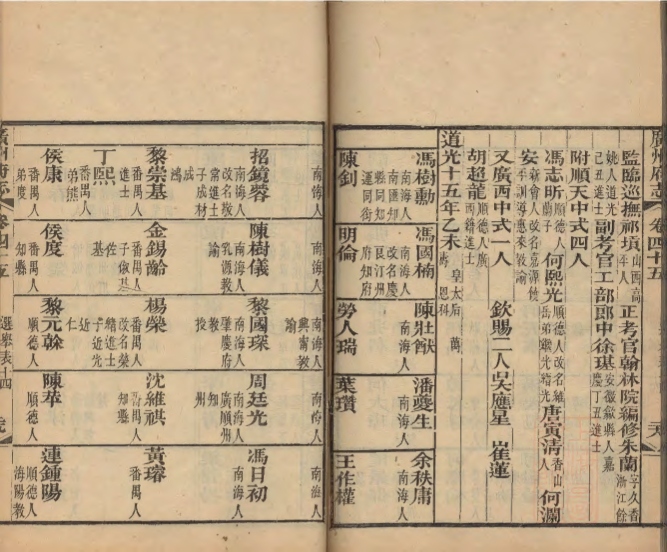 廣州府志 卷四十五
監臨巡撫祁 山西高平人 正考官翰林院編修朱蘭 字久香浙江餘
姚人道光己丑進士 副考官工部郎中徐璂 安徽歙縣人嘉慶丁丑進士
附順天中式四人
馮志昕 順德人蘭子 何熙光 順德人改名雄岳弟戰光緒光 唐寅清 香山人 何瀾
安 新會人改名嘉源候訓導惠來教諭
又廣西中式一人 欽賜二人吳應星 崔蓮
胡超龍 順德人廣西籍進士
道光十五年乙未 皇太后萬壽恩科
馮樹勳 南海人南匯知縣同知運同銜 馮國楠 南海人改名慶良汀州府知府 陳壯猷 南海人 潘夔生 南海人 余秩庸 南海人
陳釗 明倫 勞人瑞 葉瓚 王作權
南海人 南海人 南海人興甯教諭 南海人 南海人
招鏡蓉 南海人改名 常進士子成材成鴻 陳樹儀 南海人乳源教諭 黎國琛 南海人肇慶府教授 周廷光 南海人廣順州知州 馮日初 南海人
黎崇基 番禺人進士 金錫齡 番禺人子俶基佐基 楊榮 番禺人改名榮緒進士子近光近仁 沈維祺 番禺人知縣 黃璿 番禺人
丁熙 番禺人弟熊
侯康 番禺人弟度 侯度 番禺人知縣 黎元榦 順德人 陳華 順德人 連鍾陽 順德人海陽教
廣州府志 卷四十五 選舉表十四